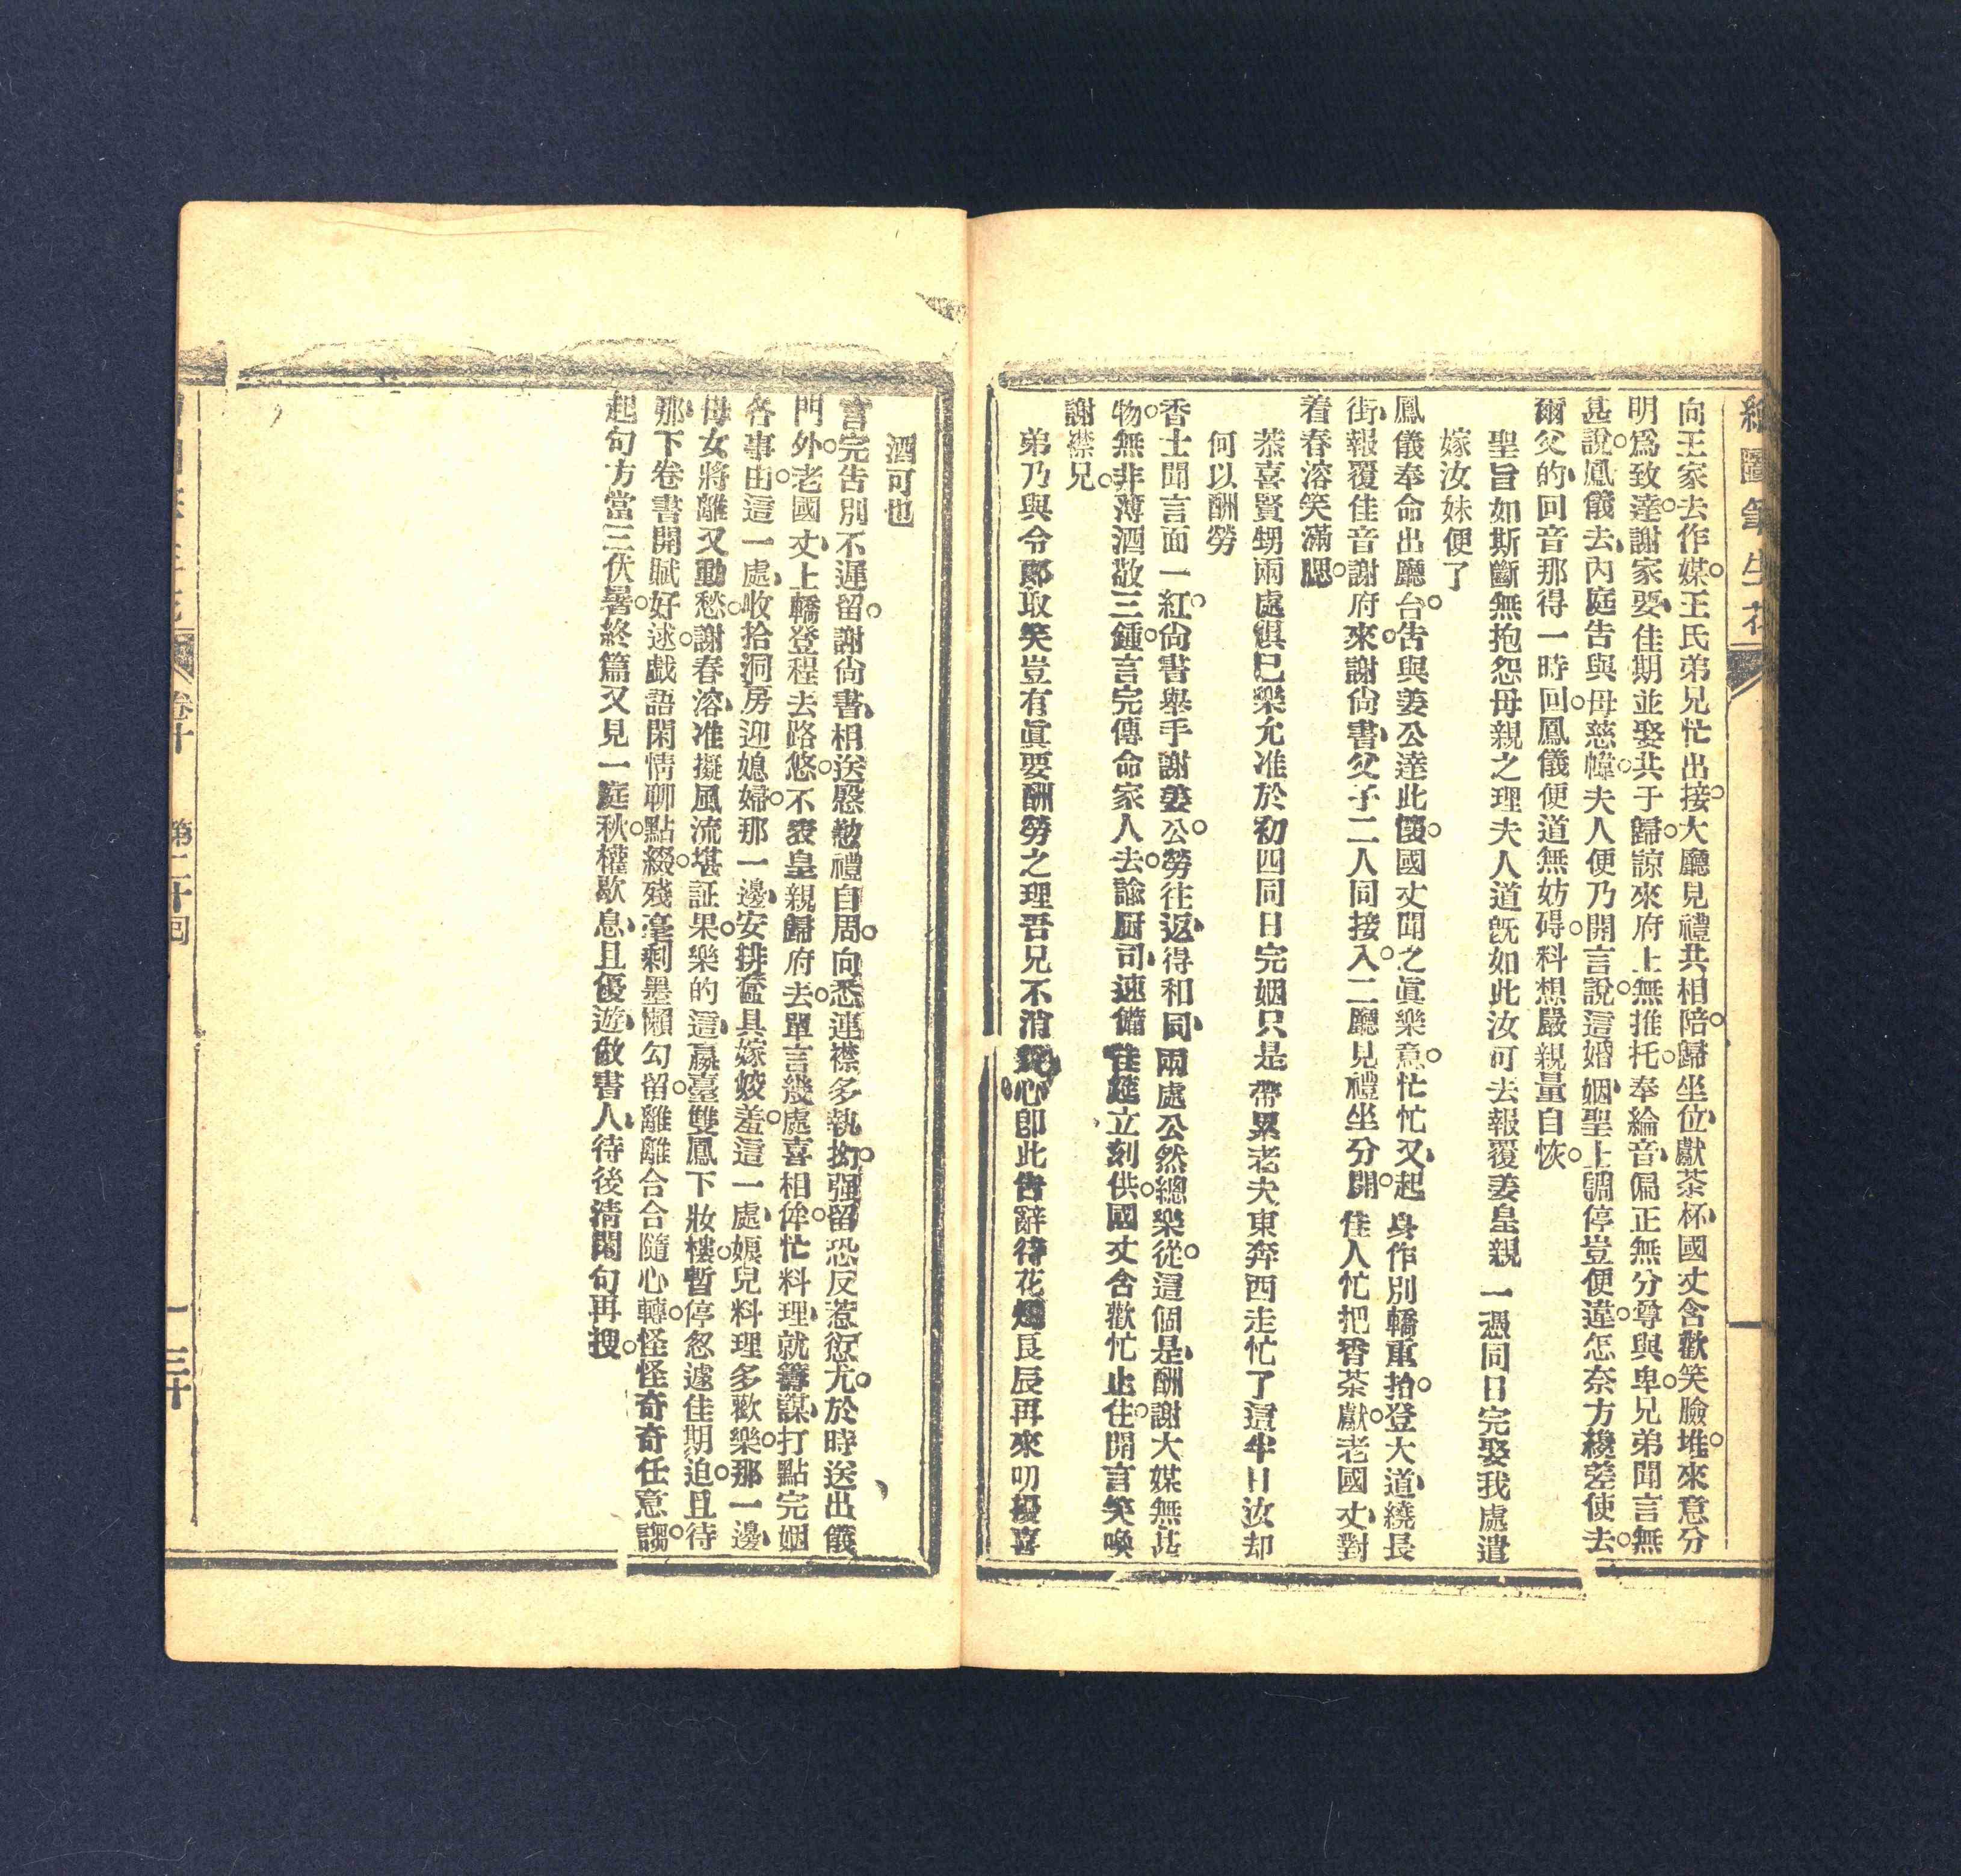 繪圖筆生花
向王家去作媒。王氏弟兄忙出接。大廳見禮共相陪。歸坐位、獻茶杯、國丈含歡笑臉堆。來意分
明爲致達。謝家要、佳期並娶共于歸。諒來府上無推托。奉綸音、偏正無分尊與卑。兄弟聞言無
甚說。鳳儀去、內庭告與母慈幃。夫人便乃開言說。這婚姻、聖上調停豈便違。怎奈方纔差使去。
爾父的、回音那得一時回。鳳儀便道無妨碍。料想嚴親量自恢。
聖旨如斯斷無抱怨母親之理夫人道旣如此汝可去報覆姜皇親一憑同日完娶我處遣
嫁汝妹便了
鳳儀奉命出廳台。告與姜公達此懷。國丈聞之眞樂意。忙忙又、起身作別轎重抬。登大道、繞長
街、報覆佳音謝府來。謝尙書、父子二人同接入。二廳見禮坐分開。佳人忙把香茶獻。老國丈、對
着春溶笑滿腮。
恭喜賢甥兩處俱已樂允准於初四同日完姻只是帶累老夫東奔西走忙了這半日汝却
何以酬勞
香士聞言面一紅。尙書舉手謝姜公。勞往返、得和同、兩處公然總樂從。這個是、酬謝大媒無甚
物。無非薄酒敬三鍾。言完傳命家人去。諭厨司、速備佳筵立刻供。國丈含歡忙止住。開言笑喚
謝襟兄。
弟乃與令郎取笑豈有眞要酬勞之理吾兄不消費心卽此告辭待花燭良辰再來叨擾喜
酒可也
言完告別不遲留。謝尙書、相送慇懃禮自周。向悉連襟多執拗。強留恐反惹愆尤。於時送出儀
門外。老國丈、上轎登程去路悠。不表皇親歸府去。單言幾處喜相侔。忙料理、就籌謀、打點完姻
各事由。這一處、收拾洞房迎媳婦。那一邊、安排奩具嫁姣羞。這一處、娘兒料理多歡樂。那一邊、
母女將離又動愁。謝春溶、准擬風流堪証果。樂的這、嬴臺雙鳳下妝樓。暫停怱遽佳期迫。且待
那、下卷書開賦好逑。戯語閑情聊點綴。殘毫剩墨懶勾留。離離合合隨心轉。怪怪奇奇任意謅。
起句方當三伏暑。終篇又見一庭秋。權歇息、且優遊、做書人、待後淸閑句再搜。
卷十 第二十回 三十